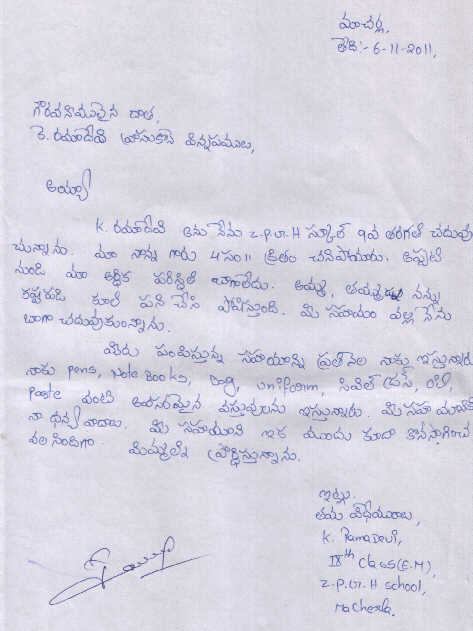 మాచర్ల,
తేది:- 6-11-2011,
గౌరవనీయులైన దాత,
కె. రమాదేవి వ్రాసుకొనే విన్నపములు,
అయ్యా
K. రమాదేవి అను నేను Z.P.G.H స్కూల్ 9వ తరగతి చదువు
చున్నాను. మా నాన్న గారు 4సం॥ క్రితం చనిపోయారు. అప్పటి
నుండి మా ఆర్థిక పరిస్థితి బాగాలేదు. అమ్మ, నన్ను
కష్టపడి కూలి పని చేసి పోషిస్తుంది. మీ సహాయం వల్ల నేను
బాగా చదువుకుంన్నాను.
మీరు పంపిస్తున్న సహాయాన్ని ప్రతినెల నాకు ఇస్తున్నారు
నాకు pens, Note Books, Bag, uniform,
Paste వంటి అవసరమైన వస్తువులను ఇస్తున్నారు. మీ
నా ధన్యవాదాలు. మీ సహాయంని ఇక ముందు కూడా కొనసాగించ
వలసిందిగా మిమ్మల్ని ప్రార్థిస్తున్నాను.
ఇట్లు,
తమ విధేయురాలు,
K. Rama Devi,
IXth Class (E.M),
Z.P.G.H School,
Macherla.